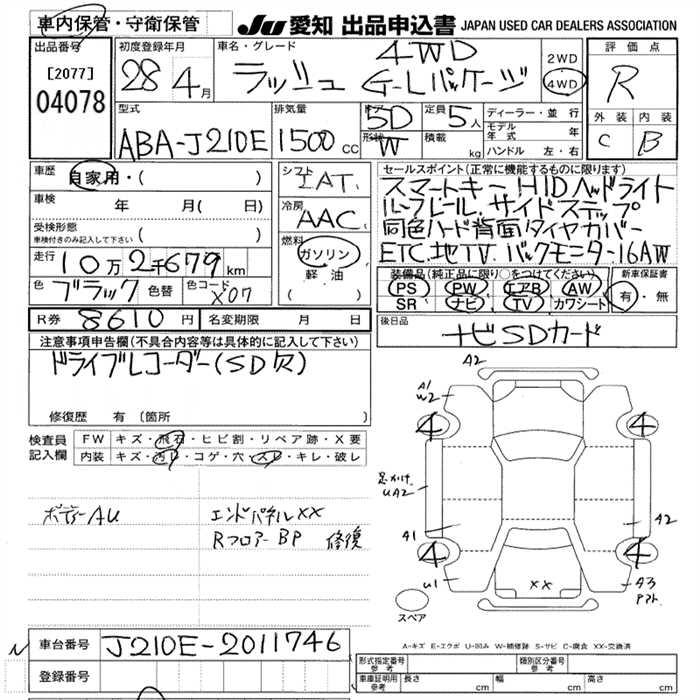 車内保管・守衛保管
JU 愛知 出品申込書 JAPAN USED CAR DEALERS ASSOCIATION
出品番号
[2077]
04078
初度登録年月
28 4月
車名・グレード
4WD
ラッシュ G-Lパッケージ
2WD
4WD
評価点
R
外装 内装
C B
型式
ABA-J210E
排気量
1500 cc
ドア
5D
形状
W
定員
5人
積載
kg
ディーラー・並行
モデル年式 年
ハンドル 左・右
車歴
自家用・( )
車検 年 月( 日)
受検形態
車検付きのみ記入して下さい ( )
走行
10万2千679km
色
ブラック
色替
色コード
X07
シフト
IAT
冷房
AAC
燃料
ガソリン
軽油
( )
セールスポイント(正常に機能するものに限ります)
スマートキー、HIDヘッドライト
ルーフレール、サイドステップ
同色ハード背面タイヤカバー
ETC、地TV、バックモニター・16AW
装備品(純正品に限り○をつけてください)
PS PW エアB AW
SR ナビ TV カワシート
新車保証書
有・無
R券 8610円
名変期限 月 日
後日品
ナビSDカード
注意事項申告欄(不具合内容等は具体的に記入して下さい)
ドライブレコーダー(SD欠)
修復歴 有(箇所 )
検査員記入欄
FW キズ・飛石・ヒビ割・リペア跡・X要
内装 キズ・汚レ・コゲ・穴・スレ・キレ・破レ
ボディーAU
エンドパネルXX
Rフロアー BP 修復
A2
A1
W2
4
4
UA2
A1
A2
4
4
U1
XX
A3
スペア
A-キズ E-エクボ U-凹み W-補修跡 S-サビ C-腐食 XX-交換済
車台番号 J210E-2011746
登録番号
形式指定番号 参考
類別区分番号 参考
車庫証明用 参考
長さ cm
幅 cm
高さ cm